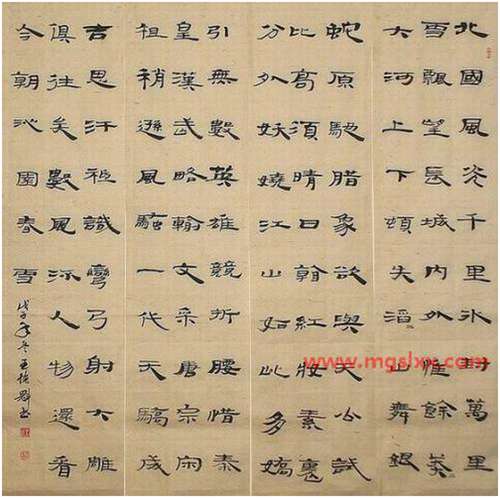 北國風光千里冰封萬里
雪飄望長城內外惟餘莽
大河上下頓失滔山舞銀
蛇原馳腊象欲與天公試
比高須晴日看紅妝素裹
分外妖嬈江山如此多嬌
引無數英雄競折腰惜秦
皇漢武略輸文采唐宗宋
祖稍遜風騷一代天驕成
吉思汗祗識彎弓射大雕
俱往矣數風流人物還看
今朝沁園春雪
戊子年冬王
www.mgslxx.com